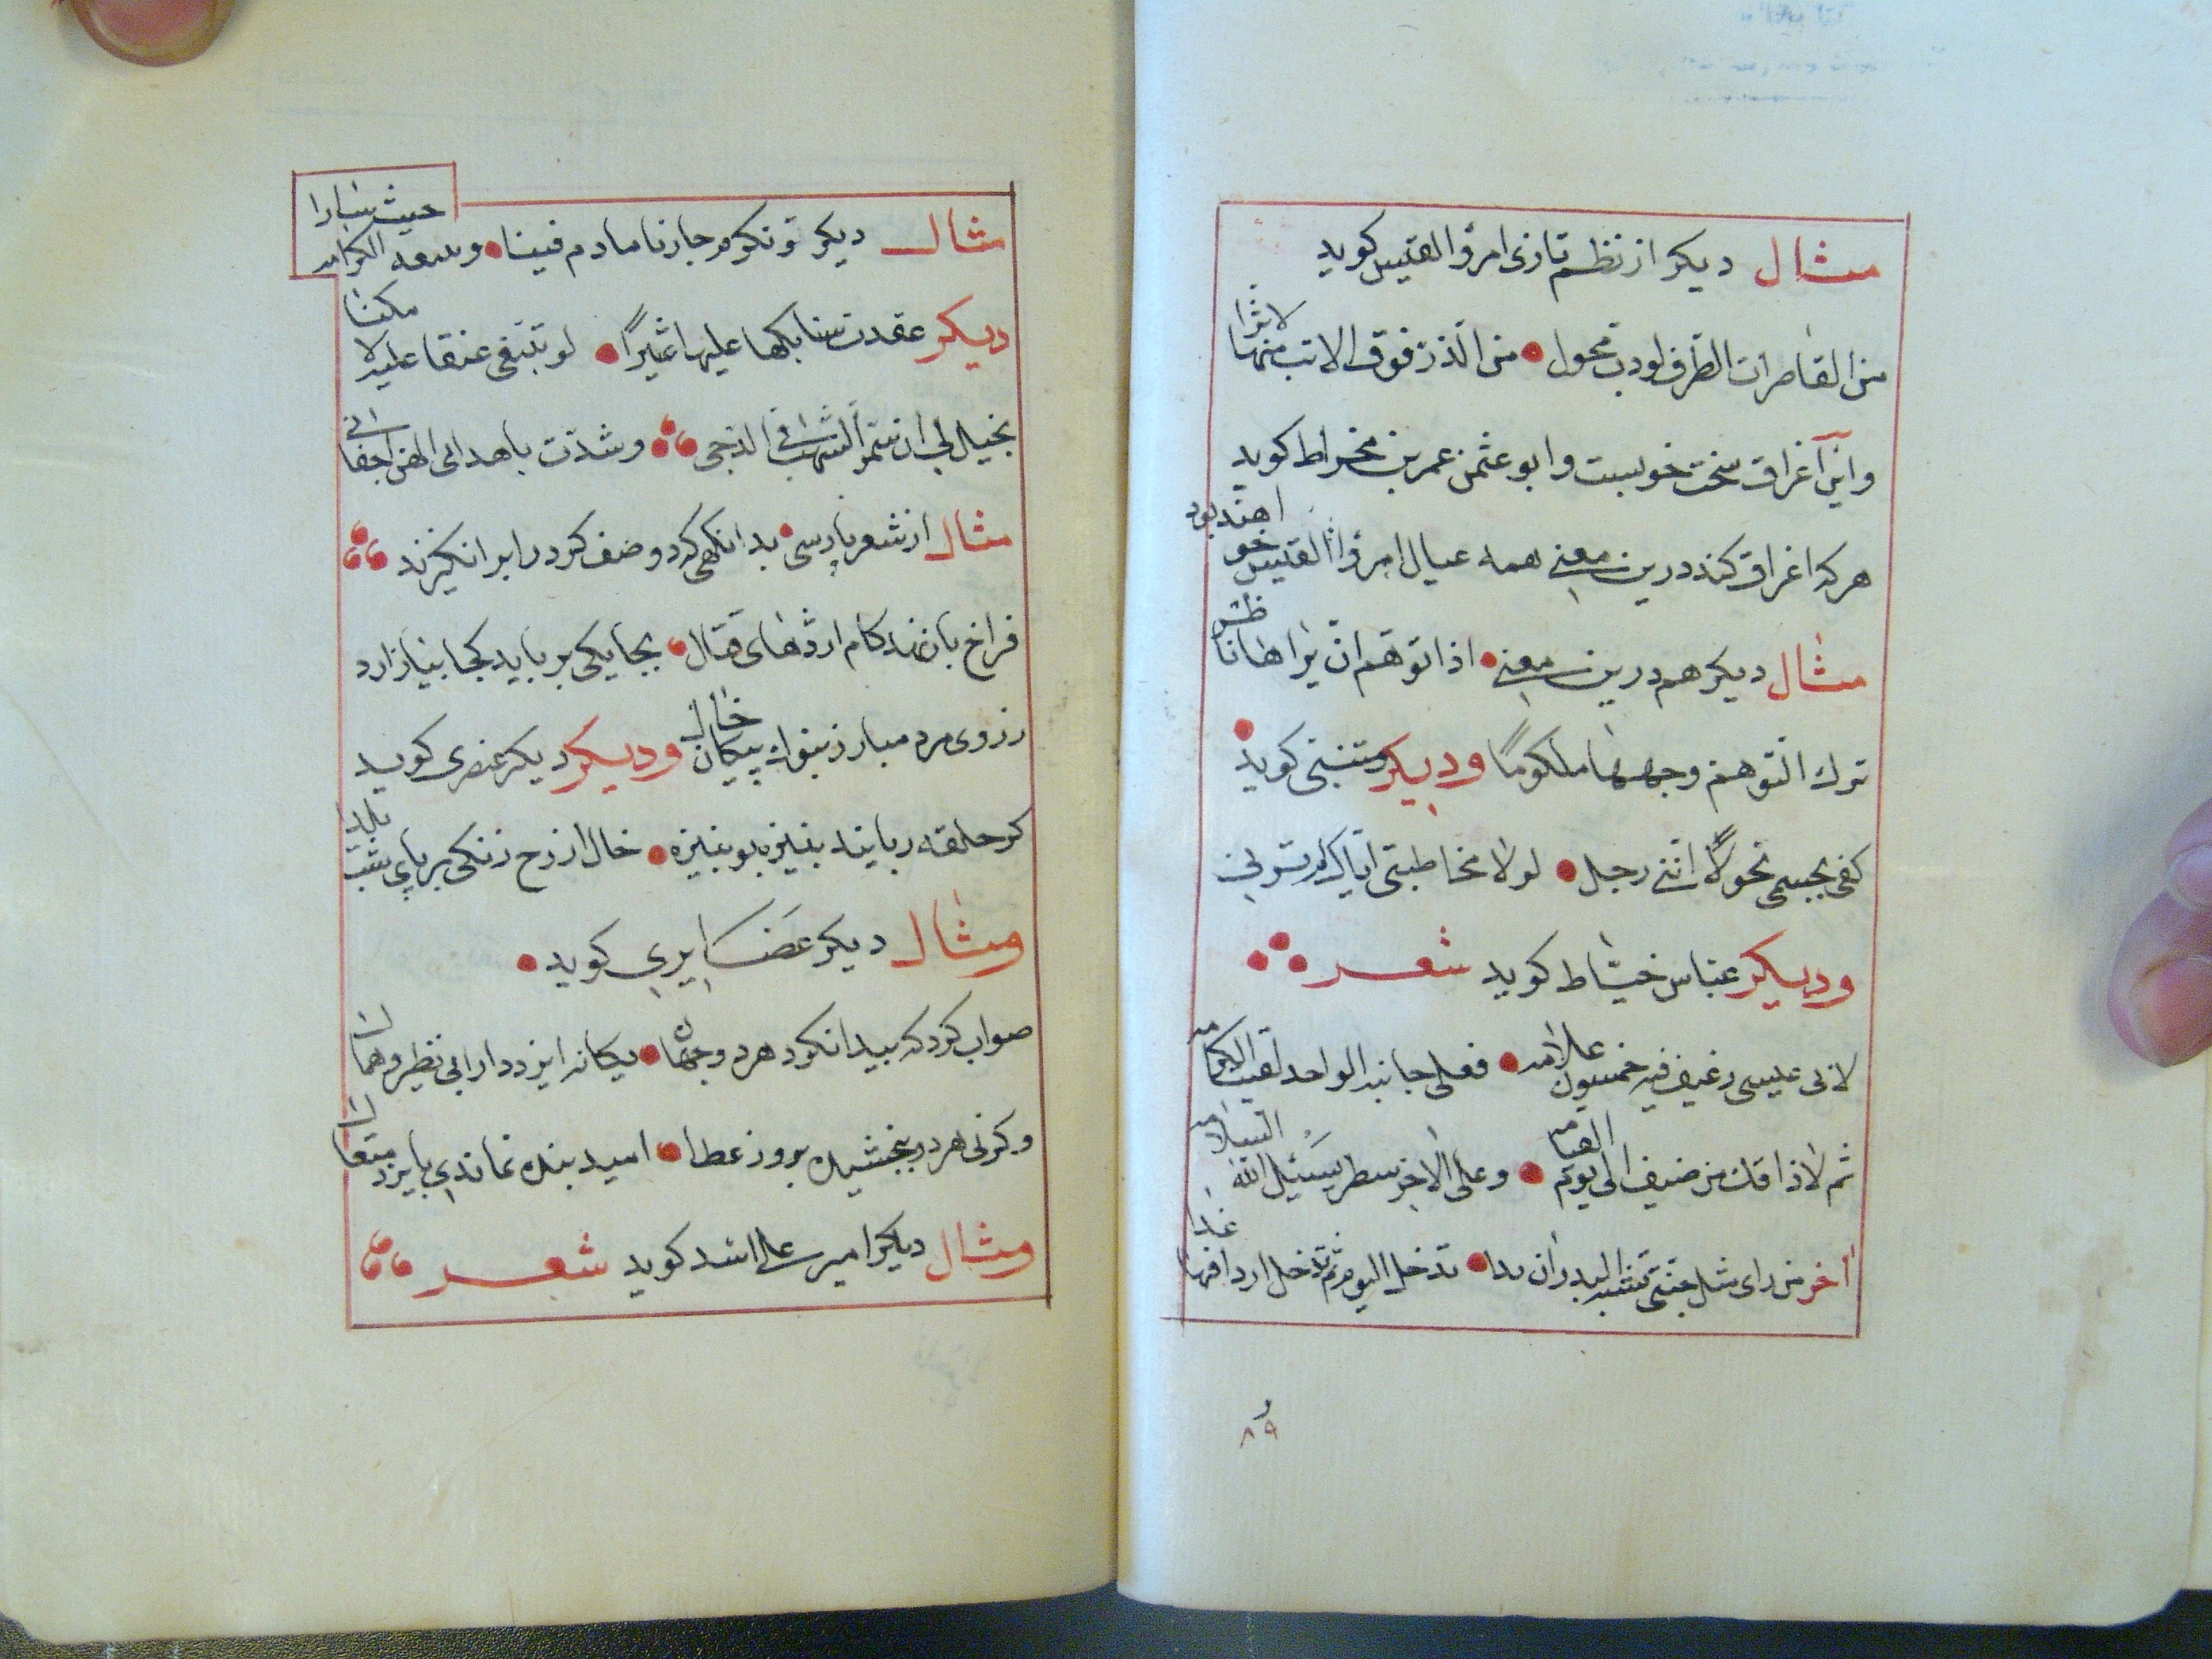 مثال دیکر از نظم تازی امرؤ القیس کوید
من القاصرات الطرف لودب محول • من الذر فوق الاتب منها لاثرا
واین اغراق سخت خوبست وابو عثمن عمر بن کوید
هر که اغراق کند درین معنی همه عیال امرؤ القیس خو اهند بود
مثال دیکر هم درین معنی • اذا توهم ان یراها نا ظر
ترك التوهم وجهها مکلوما ودیکر متنبی کوید •
کفی بجسمی نحولا اننی رجل • لولا مخاطبتی ایاک لم ترنی
ودیکر عباس خیاط کوید شعر
لابی عیسی رغیف فیه خمسون علامه • فعلی جانبه الواحد لقیت الکرامه
ثم لا ذاقك من ضیف الی یوم القیامه • وعلی الاخر سطر یسئل الله السلامه
اخر من رای مثل البدر ان بدا • تدخل الیوم ثم تدخل اردافها غدا
و
۸۹
مثال دیکر ونکرم جارنا مادام فینا • ونتبعه الکرامه حیث سارا
دیکر عقدت سنابکها علیها عثیرا • لو تبتغی عنقا علیه لا مکنا
یخیل لی ان الشهب فی الدجی وشدت باهدابی الیهن اجفانی
مثال از شعر پارسی • بد انکهی که دو صف کرد را بر انکیزند
فراخ باز نهد کام اژدهای قتال • بجایکی برباید کجا نیازارد
ز روی مرد مبارز بنوك پیکان خال ودیکر دیکر عنصری کوید
کر حلقه ربایند بنیزه تو بنیزه • خال از رخ زنکی بربایی شب یلدا
ومثال دیکر غضایری کوید •
صواب کرد که پیدا نکرد هر دو جهان • یکانه ایزد دادار بی نظیر وهمال
وکرنی هر دو ببخشیدی بروز عطا • امید بنده نماندی بایزد متعال
ومثال دیکر امیر علی اسد کوید شعر